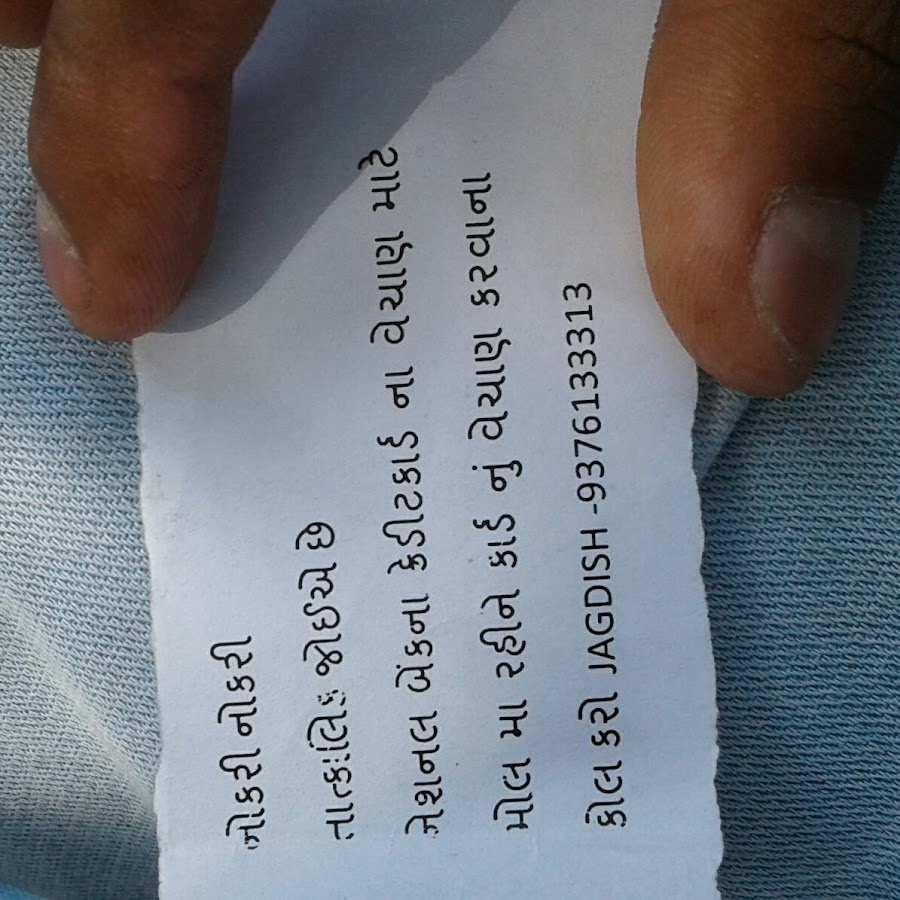 નોકરી નોકરી
તાત્કાલિક જોઇએ છે
નેશનલ બેંકના ક્રેડીટકાર્ડ ના વેચાણ માટે
મોલ મા રહીને કાર્ડ નું વેચાણ કરવાના
કોલ કરો JAGDISH -9376133313